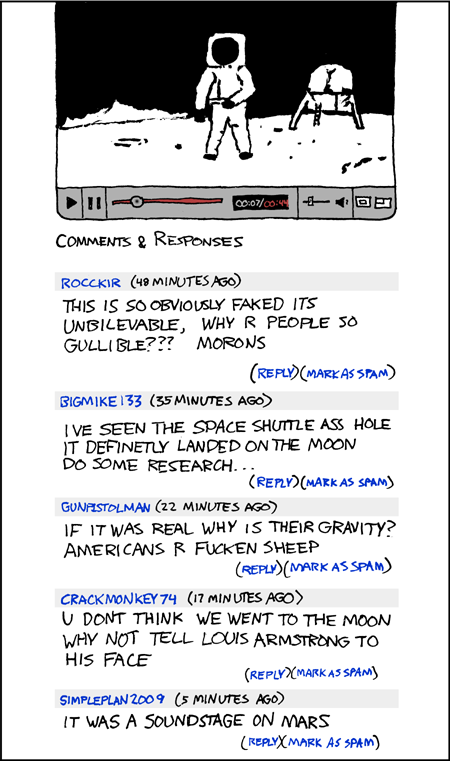 00:07/00:44
COMMENTS & RESPONSES
ROCCKIR (48 MINUTES AGO)
THIS IS SO OBVIOUSLY FAKED ITS
UNBILEVABLE, WHY R PEOPLE SO
GULLIBLE??? MORONS
(REPLY)(MARK AS SPAM)
BIGMIKE133 (35 MINUTES AGO)
IVE SEEN THE SPACE SHUTTLE ASS HOLE
IT DEFINETLY LANDED ON THE MOON
DO SOME RESEARCH...
(REPLY)(MARK AS SPAM)
GUNPISTOLMAN (22 MINUTES AGO)
IF IT WAS REAL WHY IS THEIR GRAVITY?
AMERICANS R FUCKEN SHEEP
(REPLY)(MARK AS SPAM)
CRACKMONKEY74 (17 MINUTES AGO)
U DONT THINK WE WENT TO THE MOON
WHY NOT TELL LOUIS ARMSTRONG TO
HIS FACE
(REPLY)(MARK AS SPAM)
SIMPLEPLAN2009 (5 MINUTES AGO)
IT WAS A SOUNDSTAGE ON MARS
(REPLY)(MARK AS SPAM)